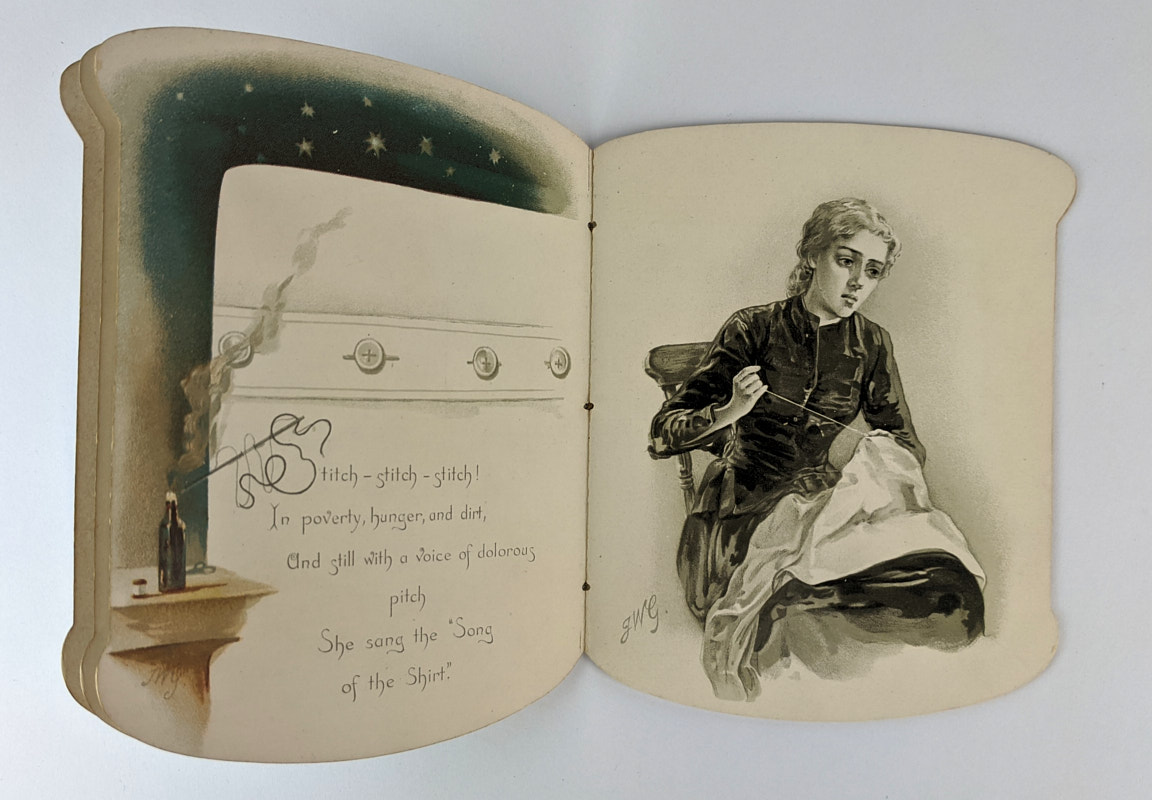 Stitch – stitch – stitch!
In poverty, hunger, and dirt,
And still with a voice of dolorous
pitch
She sang the "Song
of the Shirt."
JWG
JWG.